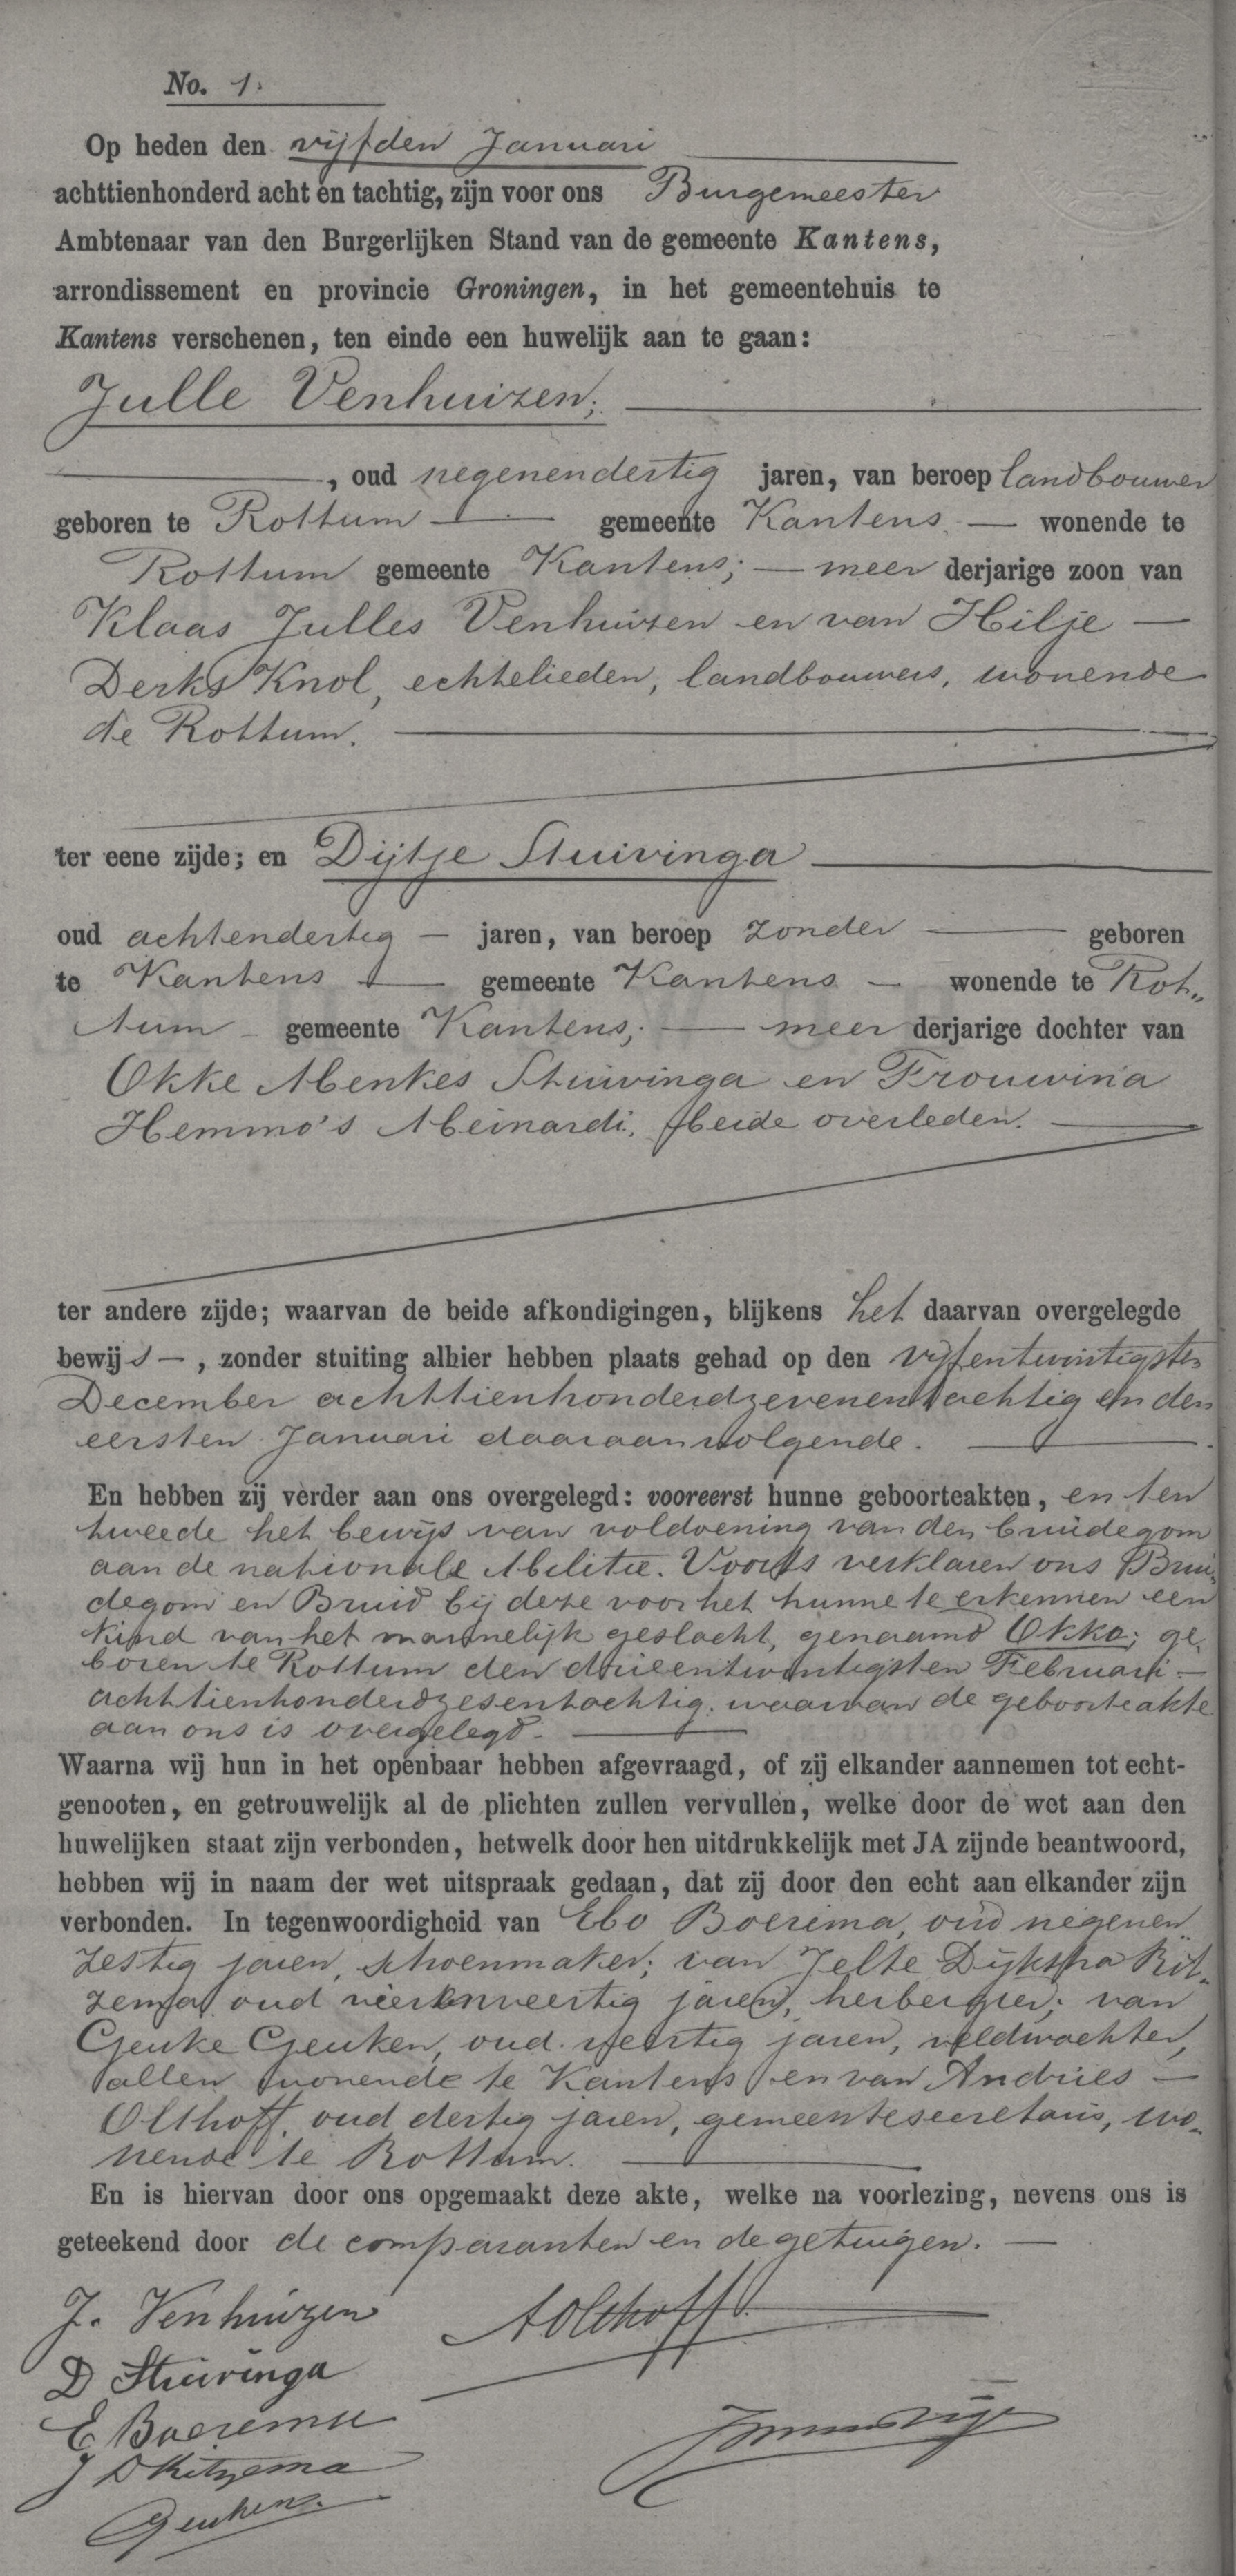 No. 1.
Op heden den vijfden Januari
achttienhonderd acht en tachtig, zijn voor ons Burgemeester
Ambtenaar van den Burgerlijken Stand van de gemeente Kantens,
arrondissement en provincie Groningen, in het gemeentehuis te
Kantens verschenen, ten einde een huwelijk aan te gaan:
Julle Venhuizen;
, oud negenendertig jaren, van beroep landbouwer
geboren te Rottum gemeente Kantens wonende te
Rottum gemeente Kantens; meer derjarige zoon van
Klaas Julles Venhuizen en van Hilje
Derks Knol, echtelieden, landbouwers, wonende
te Rottum.
ter eene zijde; en Dijtje Stuivinga
oud achtendertig jaren, van beroep zonder geboren
te Kantens gemeente Kantens wonende te Rot„
tum gemeente Kantens; meer derjarige dochter van
Okke Menkes Stuivinga en Frouwina
Hemmo's Meinardi, beide overleden.
ter andere zijde; waarvan de beide afkondigingen, blijkens het daarvan overgelegde
bewijs, zonder stuiting alhier hebben plaats gehad op den vijfentwintigsten
December achttienhonderdzevenentachtig en den
eersten Januari daaraanvolgende.
En hebben zij verder aan ons overgelegd: vooreerst hunne geboorteakten, en ten
tweede het bewijs van voldoening van den bruidegom
aan de nationale Militie. Voorts verklaren ons Brui„
degom en Bruid bij deze voor het hunne te erkennen een
kind van het mannelijk geslacht, genaamd Okko; ge„
boren te Rottum den drieentwintigsten Februari
achttienhonderdzesentachtig. waarvan de geboorteakte
aan ons is overgelegd.
Waarna wij hun in het openbaar hebben afgevraagd, of zij elkander aannemen tot echt-
genooten, en getrouwelijk al de plichten zullen vervullen, welke door de wet aan den
huwelijken staat zijn verbonden, hetwelk door hen uitdrukkelijk met JA zijnde beantwoord,
hebben wij in naam der wet uitspraak gedaan, dat zij door den echt aan elkander zijn
verbonden. In tegenwoordigheid van Ebo Boerema, oud negenen
zestig jaren, schoenmaker; van Jelte Dijkstra Rit„
zema, oud vierenveertig jaren, herbergier; van
Geuke Geuken, oud veertig jaren, veldwachter,
allen wonende te Kantens en van Andries
Olthoff, oud dertig jaren, gemeentesecretaris, wo„
nende te Rottum.
En is hiervan door ons opgemaakt deze akte, welke na voorlezing, nevens ons is
geteekend door de comparanten en de getuigen.
J. Venhuizen
AOlthoff
D Stuivinga
E Boerema
J D Ritzema
Geuken.